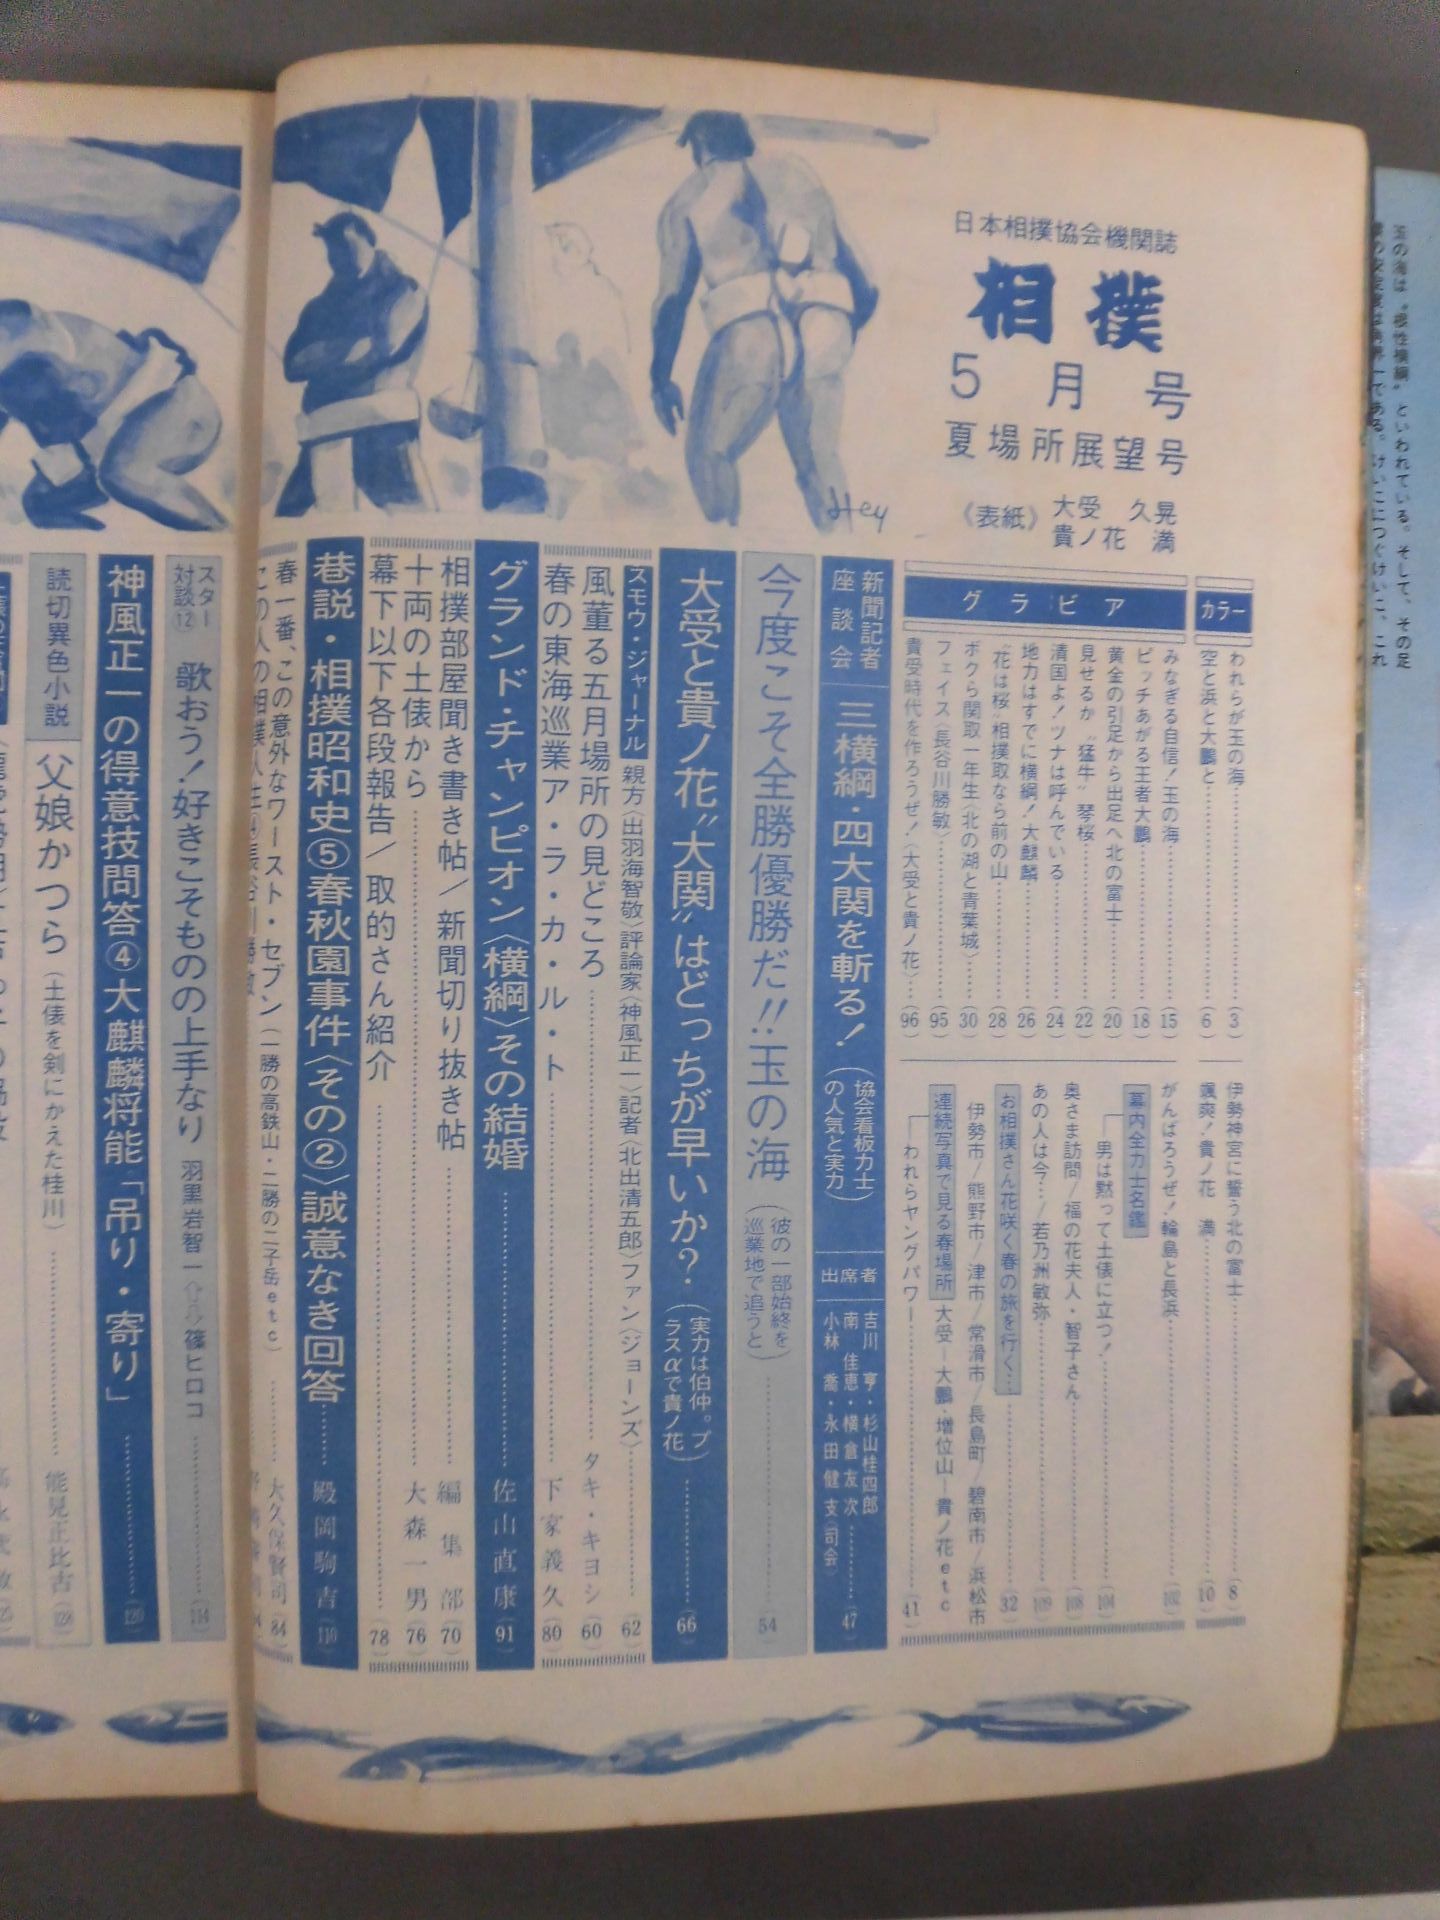 日本相撲協会機関誌
相撲
5月号
夏場所展望号
《表紙》大受 久晃
貴ノ花 満
カラー
われらが玉の海……(3)
空と浜と大鵬と……(6)
伊勢神宮に誓う北の富士……(8)
颯爽!貴ノ花 満……(10)
グラビア
みなぎる自信!玉の海……(15)
ピッチあがる王者大鵬……(18)
黄金の引足から出足へ北の富士……(20)
見せるか“猛牛”琴桜……(22)
清国よ!ツナは呼んでいる……(24)
地力はすでに横綱!大麒麟……(26)
“花は桜”相撲取なら前の山……(28)
ボクら関取一年生〈北の湖と青葉城〉……(30)
フェイス〈長谷川勝敏〉……(95)
貴受時代を作ろうぜ!〈大受と貴ノ花〉…(96)
がんばろうぜ!輪島と長浜……(102)
幕内全力士名鑑
男は黙って土俵に立つ!……(104)
奥さま訪問/福の花夫人・智子さん……(108)
あの人は今…/若乃洲敏弥……(109)
お相撲さん花咲く春の旅を行く……(32)
伊勢市/熊野市/津市/常滑市/長島町/碧南市/浜松市
連続写真で見る春場所 大受―大鵬・増位山―貴ノ花etc
われらヤングパワー……(41)
新聞記者座談会 三横綱・四大関を斬る!(協会看板力士の人気と実力)
出席者 吉川 亨・杉山桂四郎
南 佳恵・横倉友次……(47)
小林 喬・永田健支(司会)
今度こそ全勝優勝だ!!玉の海(彼の一部始終を巡業地で追うと)……54
大受と貴ノ花“大関”はどっちが早いか?(実力は伯仲。プラスαで貴ノ花)……(66)
スモウ・ジャーナル 親方〈出羽海智敬〉評論家〈神風正一〉記者〈北出清五郎〉ファン〈ジョーンズ〉……(62)
風薫る五月場所の見どころ……タキ・キヨシ(60)
春の東海巡業ア・ラ・カ・ル・ト……下家義久(80)
グランド・チャンピオン〈横綱〉その結婚……佐山直康(91)
相撲部屋聞き書き帖/新聞切り抜き帖……編集部(70)
十両の土俵から……大森一男(76)
幕下以下各段報告/取的さん紹介……(78)
巷説・相撲昭和史⑤春秋園事件〈その②〉誠意なき回答……殿岡駒吉(110)
春一番、この意外なワースト・セブン(一勝の高鉄山・二勝の二子岳etc)……大久保賢司(84)
この人の相撲人生④長谷川勝敏
スター対談⑫ 歌おう!好きこそものの上手なり 羽黒岩智一〈⇔〉篠ヒロコ……(114)
神風正一の得意技問答④大麒麟将能「吊り・寄り」……(120)
読切異色小説 父娘かつら(土俵を剣にかえた桂川)……能見正比古(128)
玉の海は“根性横綱”といわれている。そして、その足